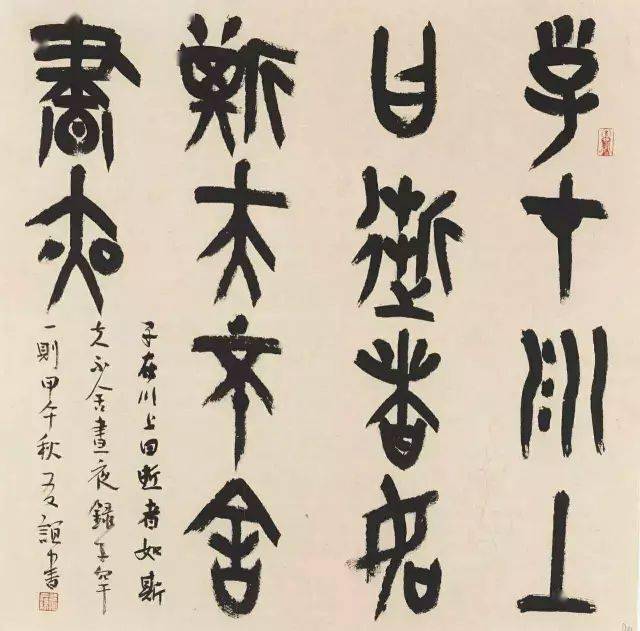 子在川上
曰逝者如
斯夫不舍
晝夜
子在川上曰逝者如斯
夫不舍晝夜錄子罕
一則甲午秋書